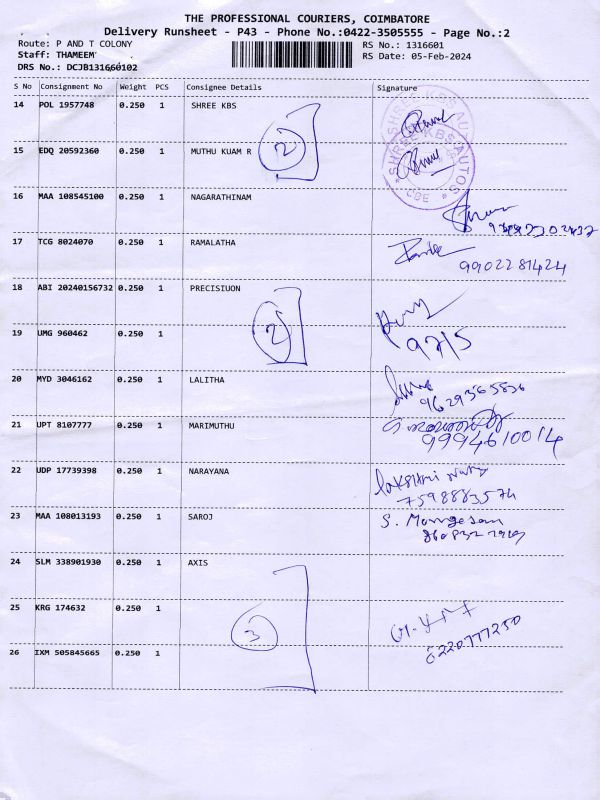 THE PROFESSIONAL COURIERS, COIMBATORE
Delivery Runsheet - P43 - Phone No.:0422-3505555 - Page No.:2
Route: P AND T COLONY
RS No.: 1316601
Staff: THAMEEM
RS Date: 05-Feb-2024
DRS No.: DCJB131660102
S No Consignment No Weight PCS Consignee Details Signature
14 POL 1957748 0.250 1 SHREE KBS
SHREE KBS AUTOS
CBE
15 EDQ 20592360 0.250 1 MUTHU KUAM R
2
16 MAA 108545100 0.250 1 NAGARATHINAM
17 TCG 8024070 0.250 1 RAMALATHA
9902281424
18 ABI 20240156732 0.250 1 PRECISIUON
19 UMG 960462 0.250 1
2
9715
20 MYD 3046162 0.250 1 LALITHA
9629365836
21 UPT 8107777 0.250 1 MARIMUTHU
9994610014
22 UDP 17739398 0.250 1 NARAYANA
7598883574
23 MAA 108013193 0.250 1 SAROJ
24 SLM 338901930 0.250 1 AXIS
25 KRG 174632 0.250 1
3
26 IXM 505845665 0.250 1